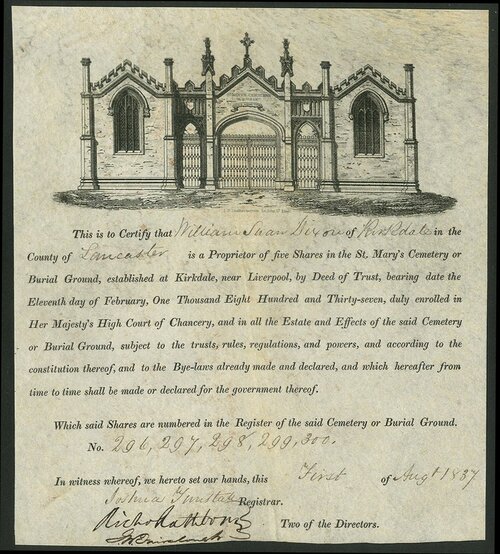 This is to Certify that William Swan Dixon of Kirkdale in the
County of Lancaster is a Proprietor of five Shares in the St. Mary's Cemetery or
Burial Ground, established at Kirkdale, near Liverpool, by Deed of Trust, bearing date the
Eleventh day of February, One Thousand Eight Hundred and Thirty-seven, duly enrolled in
Her Majesty's High Court of Chancery, and in all the Estate and Effects of the said Cemetery
or Burial Ground, subject to the trusts, rules, regulations, and powers, and according to the
constitution thereof, and to the Bye-laws already made and declared, and which hereafter from
time to time shall be made or declared for the government thereof.
Which said Shares are numbered in the Register of the said Cemetery or Burial Ground.
No. 296, 297, 298, 299, 300.
In witness whereof, we hereto set our hands, this First of Augt 1837
Joshua Tunstall Registrar.
Two of the Directors.